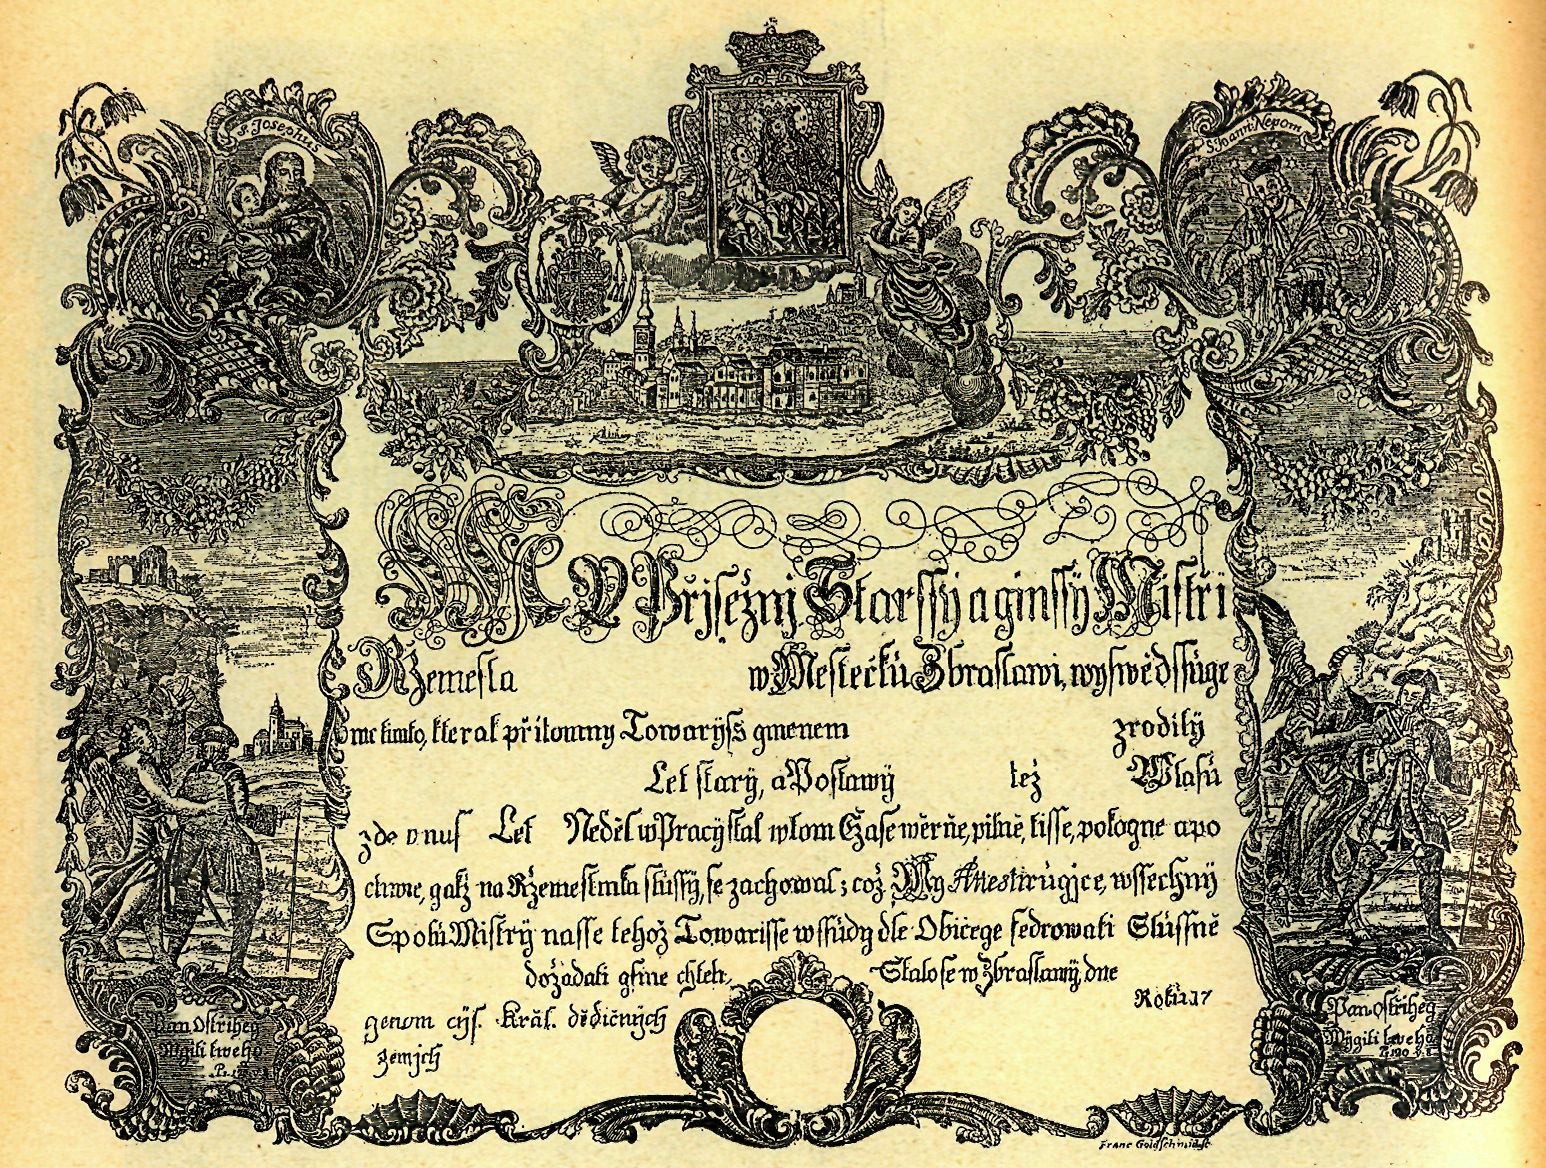 S. Josephus
S. Joann: Nepom
MY Přjsežnj Starssÿ a ginssÿ Mistři
Ržemesla w Mestečkü Zbraslawi, wyswědssüge
me timto, kterak přitomny Towarÿss gmenem zrodilÿ
Let starÿ, a Postawÿ též Wlasü
zde v nas Let Neděl w Pracÿ stal w tom Čzase wěrňe, pilně, tisse, pokogne a po
ctiwe, gakž na Ržemeslnika slussÿ, se zachowal; což My Attestirügjce, wssechnÿ
Spolü Mistrÿ nasse tehož Towarisse wssüdy dle Običege fedrowati Slüssně
dožádati gsme chteli, Stalo se w Zbraslawÿ, dne
Rokü 17
genom cÿs. Král. dědičných
zemjch
Pan Ostřiheg
Wÿgiti tweho
Pan Ostřiheg
Wÿgiti tweho
Franc Goldschmidt sc